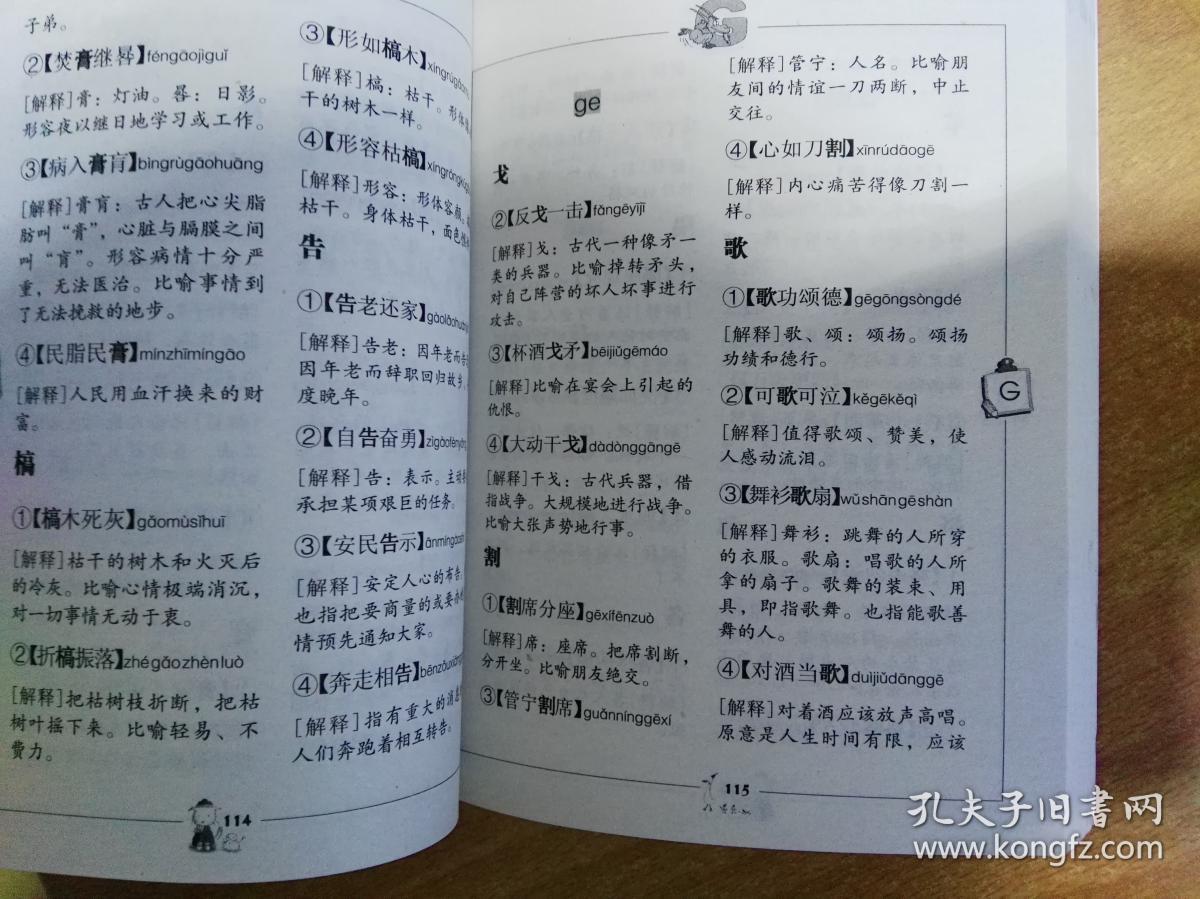 子弟。
②【焚膏继晷】féngāojìguǐ
[解释]膏：灯油。晷：日影。
形容夜以继日地学习或工作。
③【病入膏肓】bìngrùgāohuāng
[解释]膏肓：古人把心尖脂
肪叫“膏”，心脏与膈膜之间
叫“肓”。形容病情十分严
重，无法医治。比喻事情到
了无法挽救的地步。
④【民脂民膏】mínzhīmíngāo
[解释]人民用血汗换来的财
富。
槁
①【槁木死灰】gǎomùsǐhuī
[解释]枯干的树木和火灭后
的冷灰。比喻心情极端消沉，
对一切事情无动于衷。
②【折槁振落】zhégǎozhènluò
[解释]把枯树枝折断，把枯
树叶摇下来。比喻轻易、不
费力。
114
③【形如槁木】xíngrúgǎo
[解释]槁：枯干。形体
干的树木一样。
④【形容枯槁】xíngróngkū
[解释]形容：形体容颜。
枯干。身体枯干，面色
告
①【告老还家】gàolǎohuán
[解释]告老：因年老而
因年老而辞职回归故乡，
度晚年。
②【自告奋勇】zìgàofèn
[解释]告：表示。主动
承担某项艰巨的任务。
③【安民告示】ānmíngàoshì
[解释]安定人心的布告。
也指把要商量的或要
情预先通知大家。
④【奔走相告】bēnzǒuxiāng
[解释]指有重大的消息
人们奔跑着相互转告。
G
ge
戈
②【反戈一击】fǎngēyījī
[解释]戈：古代一种像矛一
类的兵器。比喻掉转矛头，
对自己阵营的坏人坏事进行
攻击。
③【杯酒戈矛】bēijiǔgēmáo
[解释]比喻在宴会上引起的
仇恨。
④【大动干戈】dàdònggāngē
[解释]干戈：古代兵器，借
指战争。大规模地进行战争。
比喻大张声势地行事。
割
①【割席分座】gēxífēnzuò
[解释]席：座席。把席割断，
分开坐。比喻朋友绝交。
③【管宁割席】guǎnnínggēxí
[解释]管宁：人名。比喻朋
友间的情谊一刀两断，中止
交往。
④【心如刀割】xīnrúdāogē
[解释]内心痛苦得像刀割一
样。
歌
①【歌功颂德】gēgōngsòngdé
[解释]歌、颂：颂扬。颂扬
功绩和德行。
②【可歌可泣】kěgēkěqì
[解释]值得歌颂、赞美，使
人感动流泪。
③【舞衫歌扇】wǔshāngēshàn
[解释]舞衫：跳舞的人所穿
的衣服。歌扇：唱歌的人所
拿的扇子。歌舞的装束、用
具，即指歌舞。也指能歌善
舞的人。
④【对酒当歌】duìjiǔdānggē
[解释]对着酒应该放声高唱。
原意是人生时间有限，应该
G
115
孔夫子旧书网
www.kongfz.com